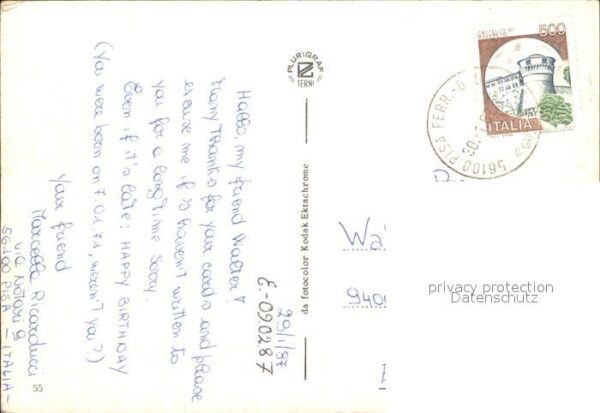 Hallo, my friend Walter!
Many Thanks for your cards and please
excuse me if I haven't written to
you for a long time. Sorry.
Even if it's late: HAPPY BIRTHDAY
(You were born on 7.01.71, weren't you?)
Your friend
Marcella Ricarducci
via Notari 9
56100 PISA - ITALIA -
29/1/87
E-090287
55
PLURIGRAF
TERNI
da fotocolor Kodak Ektachrome
CASTELLO DI
ROVERETO
500
ITALIA
56100 PISA FERR.
Wa
940
privacy protection
Datenschutz